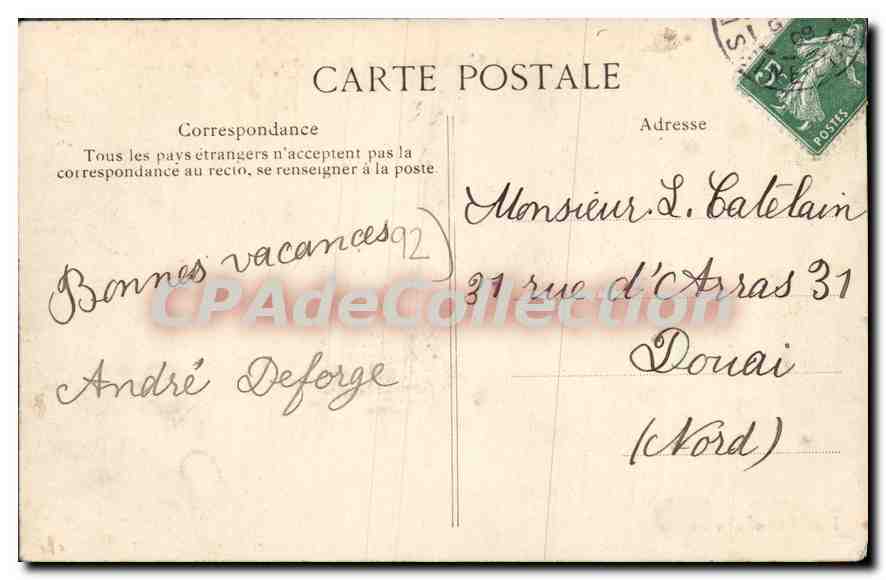 CARTE POSTALE
Correspondance
Tous les pays étrangers n'acceptent pas la
correspondance au recto, se renseigner à la poste.
Bonnes vacances
92
André Deforge
Adresse
Monsieur L. Catelain
31 rue d'Arras 31
Douai
(Nord)
5c
POSTES
CPAdeCollection